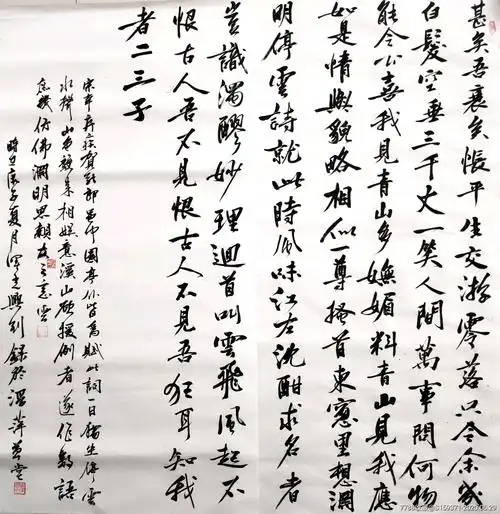 甚矣吾衰矣悵平生交游零落只今余幾
白髮空垂三千丈一笑人間萬事問何物
能令公喜我見青山多嫵媚料青山見我應
如是情與貌略相似一尊搔首東窗里想淵
明停雲詩就此時風味江左沈酣求名者
豈識濁醪妙理迴首叫雲飛風起不
恨古人吾不見恨古人不見吾狂耳知我
者二三子
宋辛弃疾賀新郎邑中園亭仆皆為賦此詞一日獨坐停雲
水聲山色競來相娛意溪山欲援例者遂作數語
庶幾仿佛淵明思親友之意雲
時在庚子夏月興到錄於萍堂